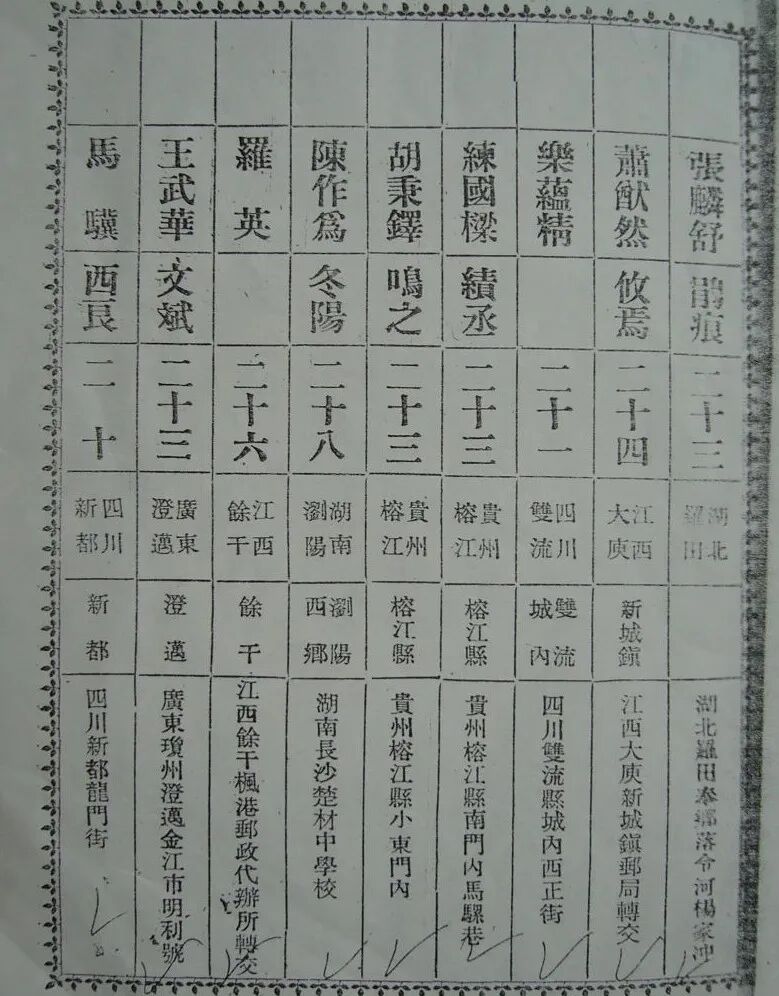 張麟舒 鵑痕 二十三 湖北羅田 湖北羅田奉鄉落令河楊家沖
蕭猷然 攸焉 二十四 江西大庾 新城鎮 江西大庾新城鎮郵局轉交
樂蘊精 二十一 四川雙流 雙流城內 四川雙流縣城內西正街
練國樑 績丞 二十三 貴州榕江 榕江縣 貴州榕江縣南門內馬騾巷
胡秉鐸 鳴之 二十三 貴州榕江 榕江縣 貴州榕江縣小東門內
陳作爲 冬陽 二十八 湖南瀏陽 瀏陽西鄉 湖南長沙楚材中學校
羅英 二十六 江西餘干 餘干 江西餘干楓港郵政代辦所轉交
王武華 文斌 二十三 廣東澄邁 澄邁 廣東瓊州澄邁金江市明利號
馬驥 西良 二十 四川新都 新都 四川新都龍門街